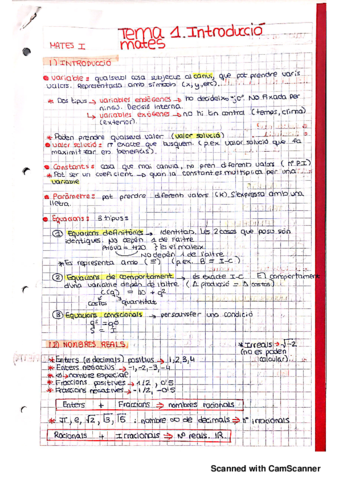 Tema 1. Introducció
MATES I
mates
1) INTRODUCCIÓ
Variable: qualsevol cosa subjecte al canvi, que pot prendre varis
valors. Representada amb símbols (x, y, etc).
* Dos tipus → variables endògenes → ho decideixo "jo". No fixada per
ningú. Decisió interna.
↳ variables exògenes → no hi tinc control (temps, clima)
(exterior).
* Poden prendre qualsevol valor (valor solució)
valor solució: nº exacte que busquem (p.ex valor solució que fa
maximitzar els beneficis).
Constants: cosa que mai canvia, no pren diferents valors (nº PI)
* Pot ser un coeficient → quan la constant es multiplica per una
variable
Paràmetres: pot prendre diferents valors (K). S'expressa amb una
lletra.
Equacions: 3 tipus:
① Equacions definitòries → identitats, les 2 coses que poso són
idèntiques. No depèn 1 de l'altre.
No depèn 1 de l'altre.
* Es representa amb (≡) (p.ex. B ≡ I-C)
② Equacions de comportament → és exacte I-C El comportament
d'una variable depèn de l'altre (Δ producció = Δ costos)
C(q) = 10 + q²
costos quantitat
③ Equacions condicionals → per satisfer una condició
S = I
1.2) NOMBRES REALS.
* Irreals → √-2
(no es poden
calcular).
* Enters (no decimals) positius → 1, 2, 3, 4
* Enters negatius → -1, -2, -3, -4
* 0 → nombre especial.
* Fraccions positives → 1/2, 0'5
* Fraccions negatives → -1/2, -0'5
Enters + Fraccions → nombres racionals
* π, e, √2, √3, √5 : nombre ∞ de decimals → nº irracionals
Racionals + Irracionals → Nº reals. ℝ.
Scanned with CamScanner